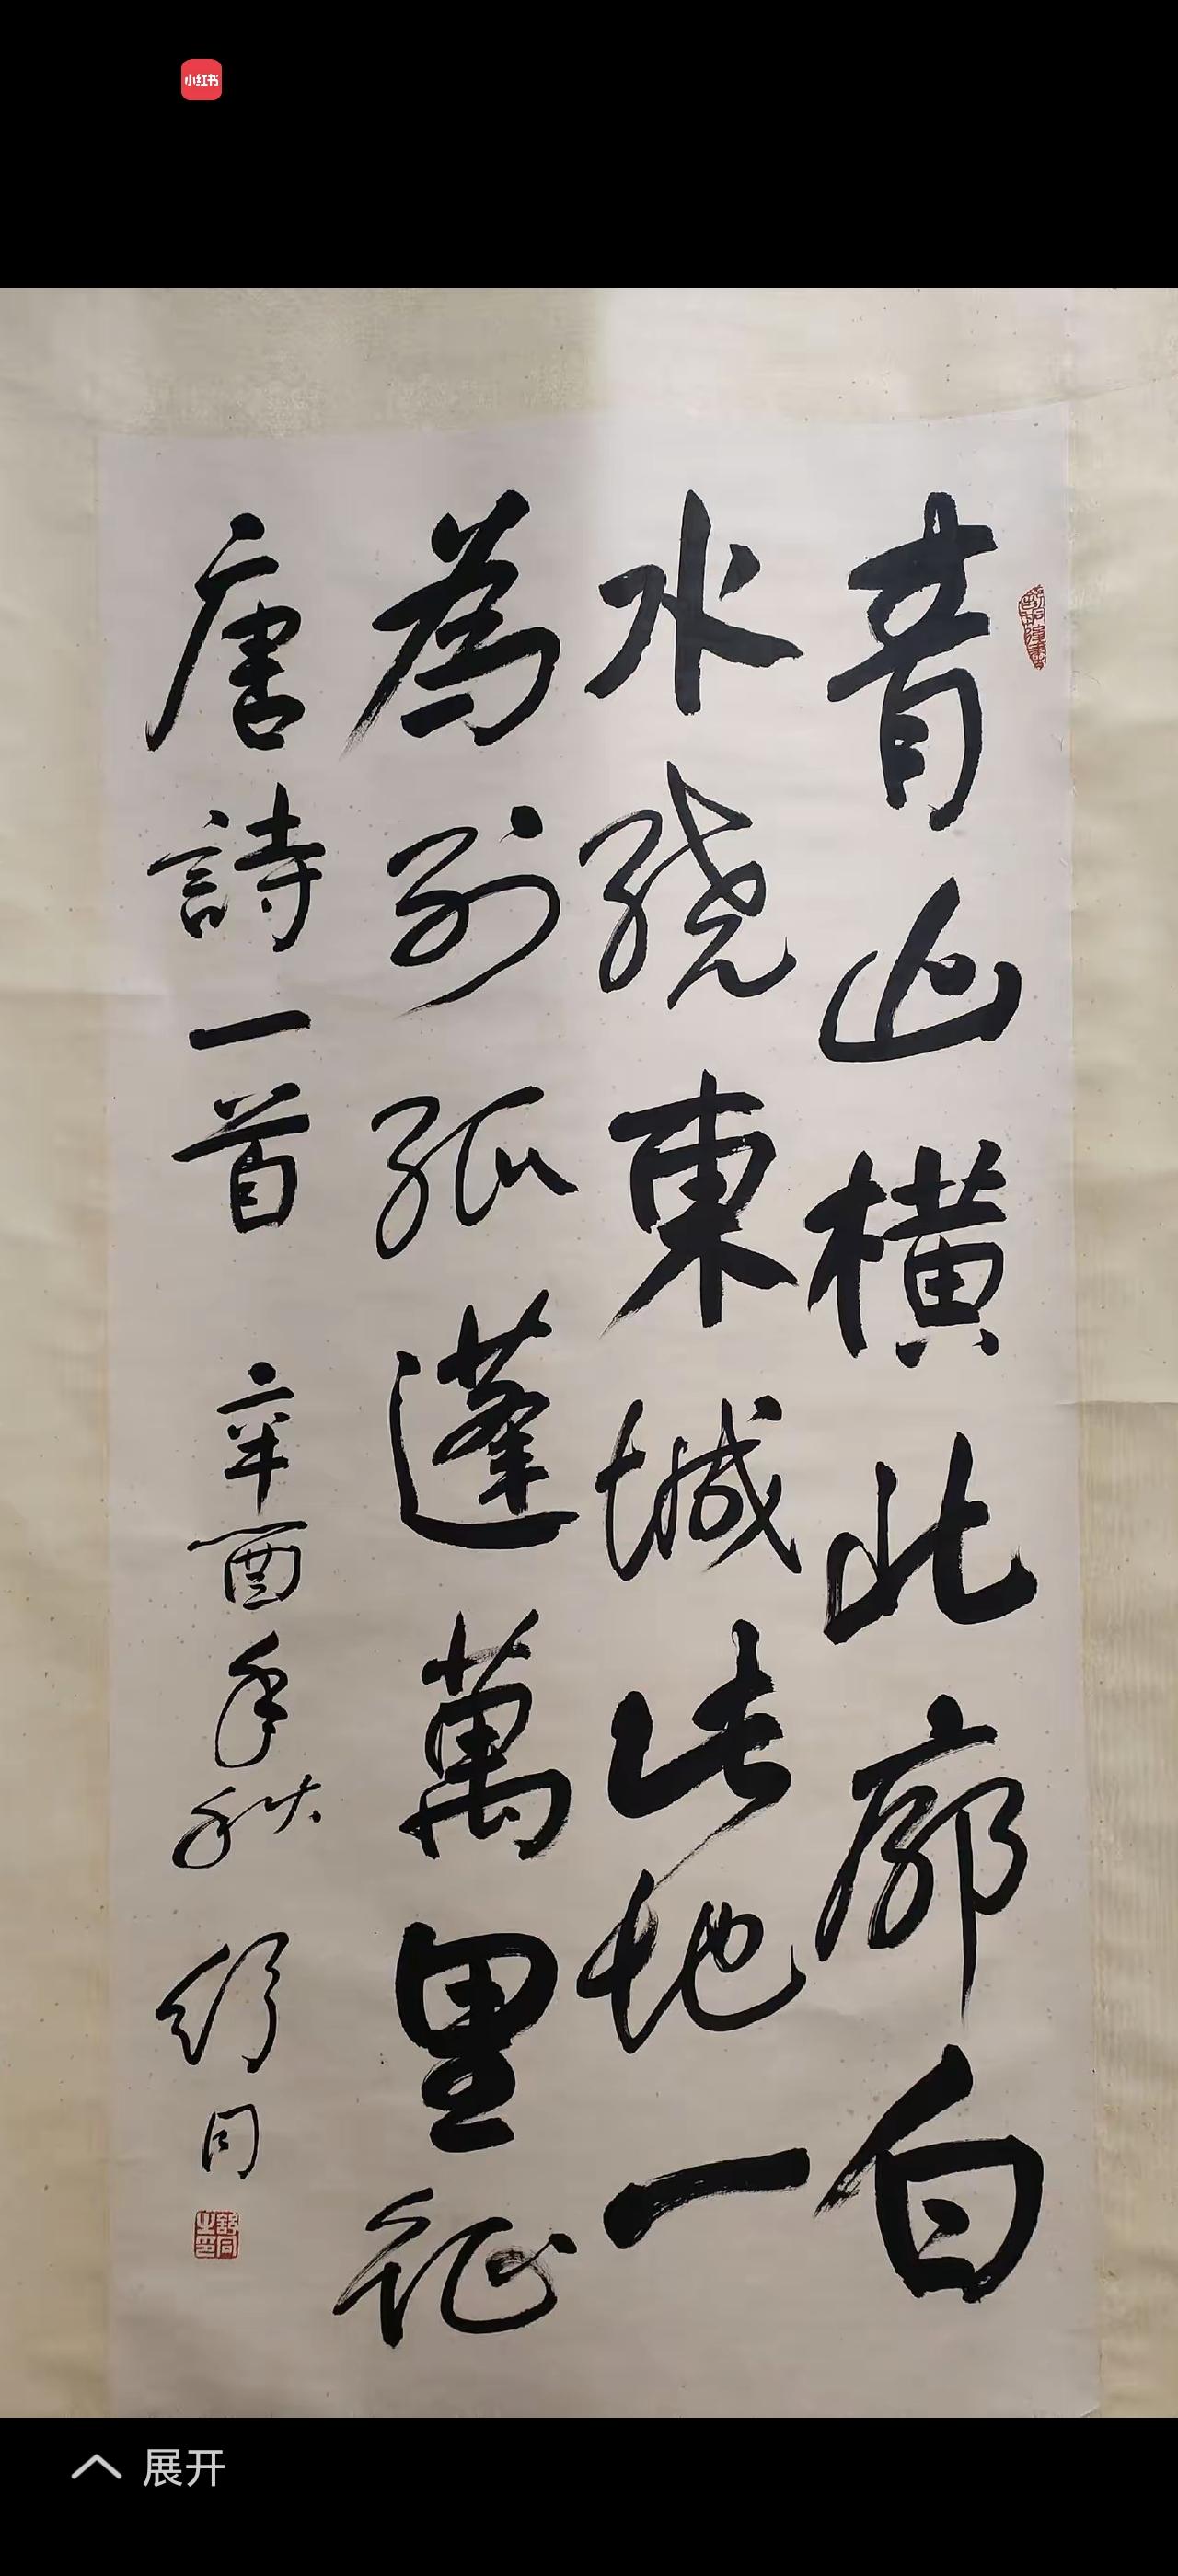 小红书
青山橫北廓白
水绕東城此地一
為别孤蓬萬里征
唐詩一首 辛酉年秋 舒同
舒同之印
展开